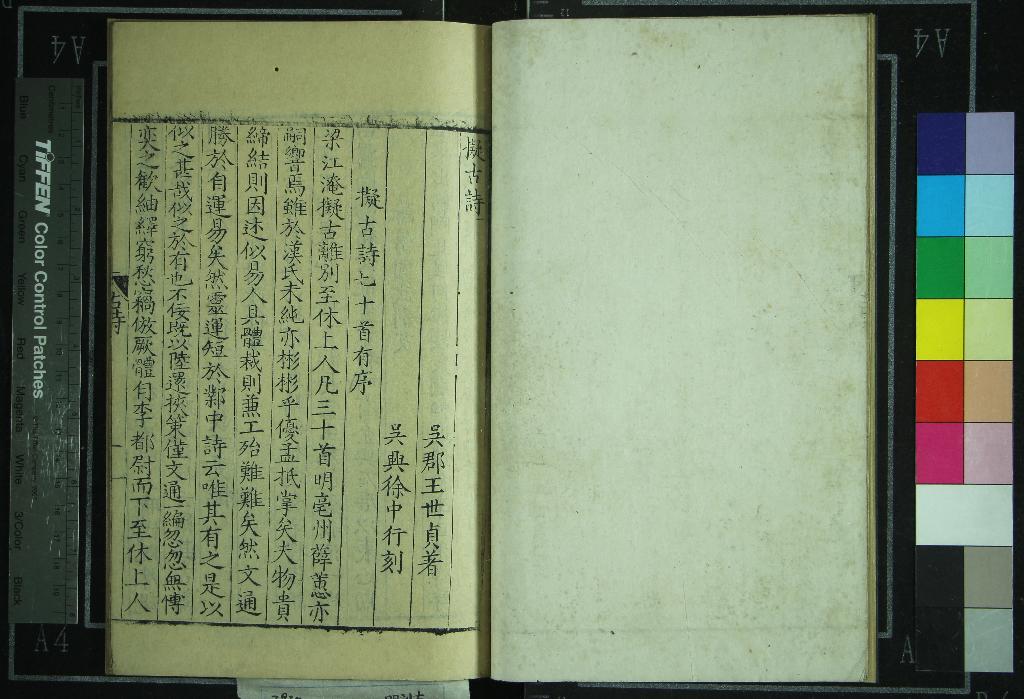 擬古詩
吳郡王世貞著
吳興徐中行刻
擬古詩七十首有序
梁江淹擬古離別至休上人凡三十首明亳州薛蕙亦
嗣響焉雖於漢氏未純亦彬彬乎優孟抵掌矣夫物貴
締結則因迷似易人具體裁則兼工殆難難矣然文通
勝於自運易矣然靈運短於鄴中詩云唯其有之是以
似之甚哉似之於有也不佞既以陸還挾策僅文通一編忽忽無慱
奕之歡紬繹窮愁竊倣厥體自李都尉而下至休上人
古詩
TIFFEN Color Control Patches
Centimetres
Blue Cyan Green Yellow Red Magenta White 3/Color Black
A4
A4
A4
A